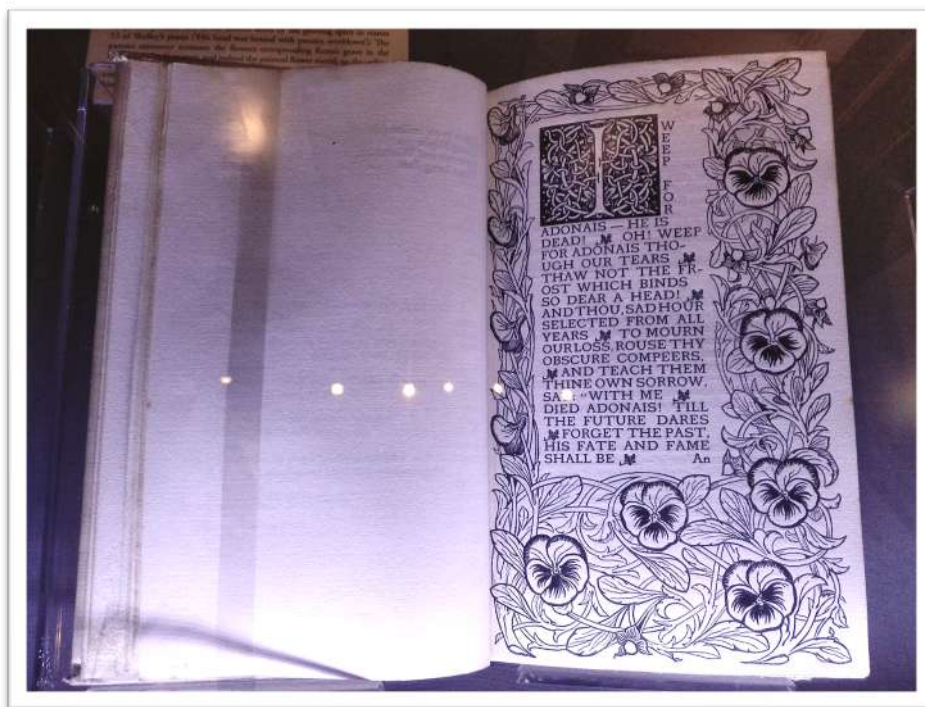 33 of Shelley's poem ('His head was bound with pansies overblown'). The
I
WEEP
FOR
ADONAIS — HE IS
DEAD! OH! WEEP
FOR ADONAIS THO-
UGH OUR TEARS
THAW NOT THE FR-
OST WHICH BINDS
SO DEAR A HEAD!
AND THOU, SAD HOUR
SELECTED FROM ALL
YEARS TO MOURN
OUR LOSS, ROUSE THY
OBSCURE COMPEERS,
AND TEACH THEM
THINE OWN SORROW,
SAY: "WITH ME
DIED ADONAIS! TILL
THE FUTURE DARES
FORGET THE PAST,
HIS FATE AND FAME
SHALL BE An